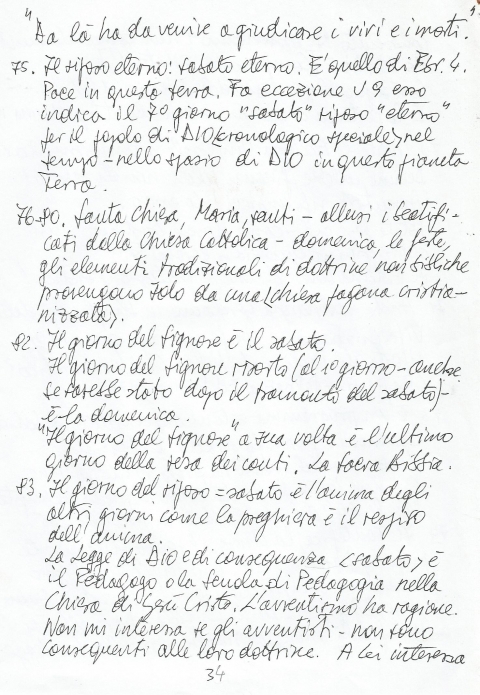 "Da là ha da venire a giudicare i vivi e i morti."
75. Il riposo eterno: sabato eterno. E' quello di Ebr. 4.
Pace in questa terra. Fa eccezione v 9 esso
indica il 7º giorno "sabato" riposo "eterno"
per il popolo di DIO <cronologico speciale> nel
tempo - nello spazio di DIO in questo pianeta
Terra.
76-80. Santa Chiesa, Maria, santi - allusi i beatifi-
cati dalla Chiesa Cattolica - domenica, le feste,
gli elementi tradizionali di dottrine non bibliche
provengono solo da una <chiesa pagana cristia-
nizzata>.
82. Il giorno del Signore è il sabato.
Il giorno del Signore risorto (al 1º giorno - anche
se sarebbe stato dopo il tramonto del sabato) -
è la domenica.
"Il giorno del Signore" a sua volta è l'ultimo
giorno della resa dei conti. La Sacra Bibbia.
83. Il giorno del riposo = sabato è l'anima degli
altri giorni come la preghiera è il respiro
dell'anima.
La Legge di Dio e di conseguenza <sabato> è
il Pedagogo o la Scuola di Pedagogia nella
Chiesa di Gesù Cristo. L'avventismo ha ragione.
Non mi interessa se gli avventisti - non sono
conseguenti alle loro dottrine. A Lei interessa
34